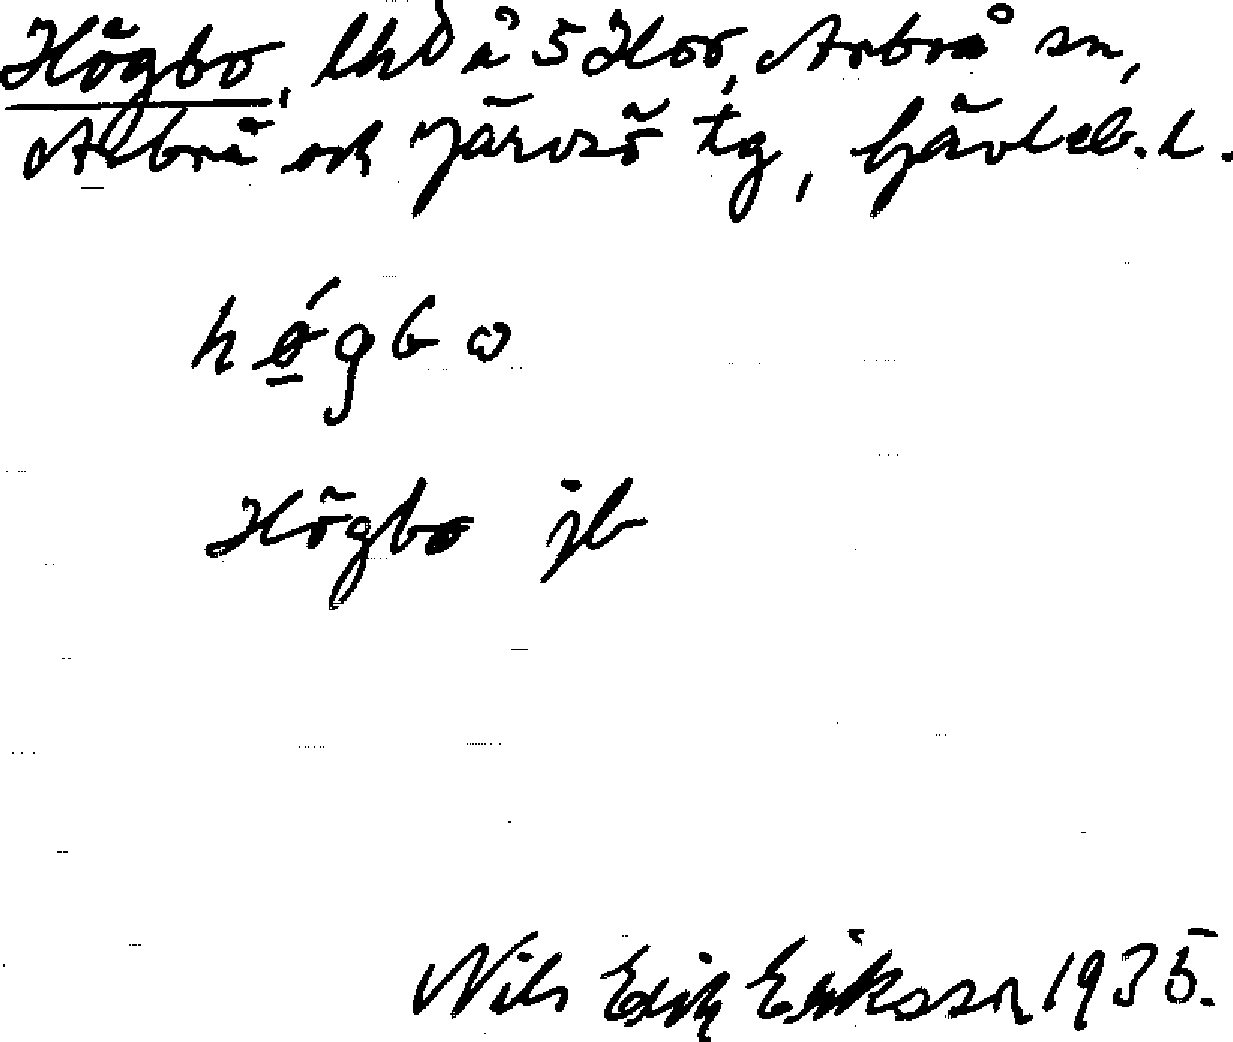 Högbo, lhd å 5 Hov, Arbrå sn,
Arbrå och Järvsö tg, Gävleb. l.
hǿ̱gbω
Högbo jb
Nils Erik Eriksson 1935.